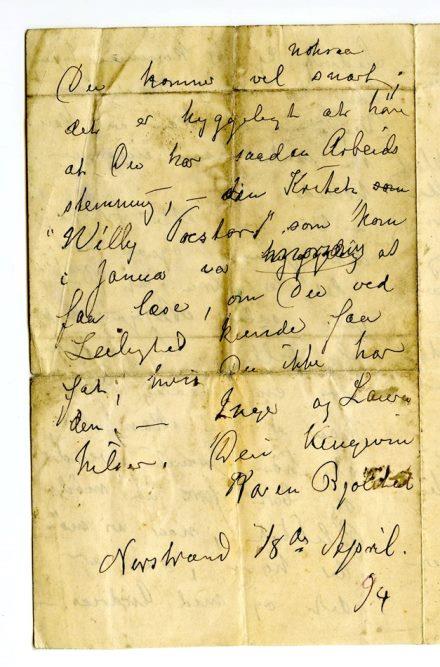 Du kommer vel snart;
det er hyggeligt at høre
at Du har saadan Arbeids
stemning, — den Kritik som
"Willy Pastor", som kom
i Januar var at
faa læse, om Du ved
Leilighed kunde faa
fat; hvis Du ikke har
den. — Inge og
hilser. Din hengivne
Karen Bjølstad
Norstrand 18de April.
94